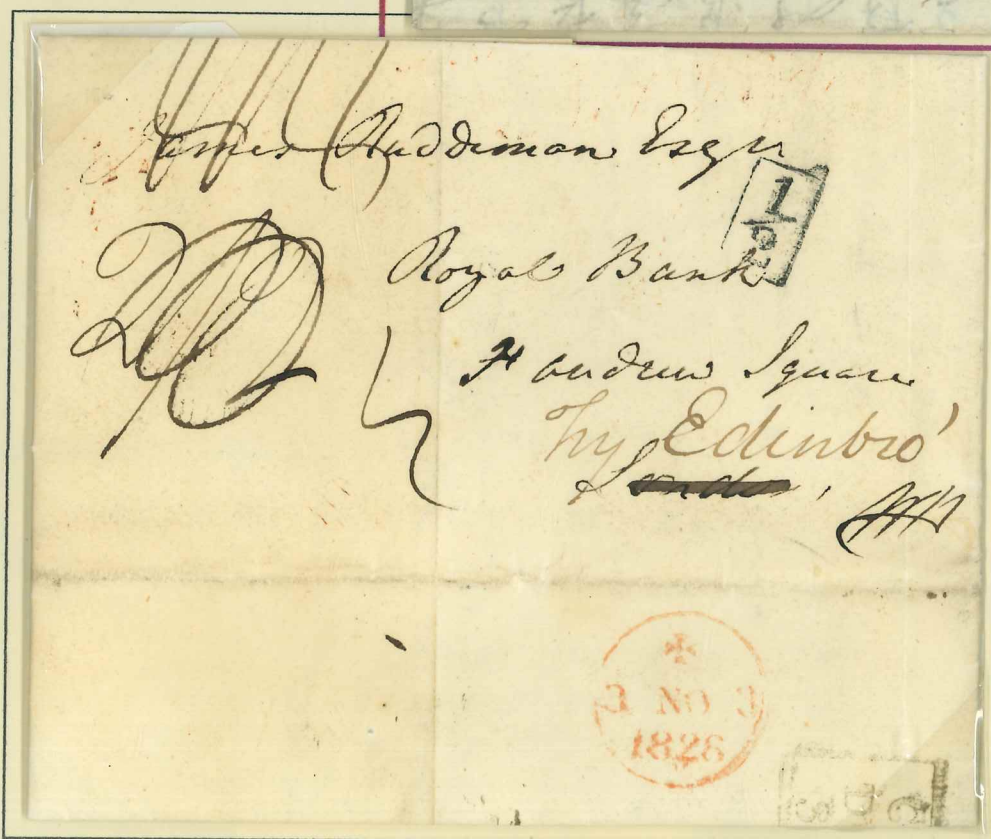 James Ruddiman Esqr
1/2
Royal Bank
St andrew Square
Try Edinbro'
London,
3 NO 3
1828